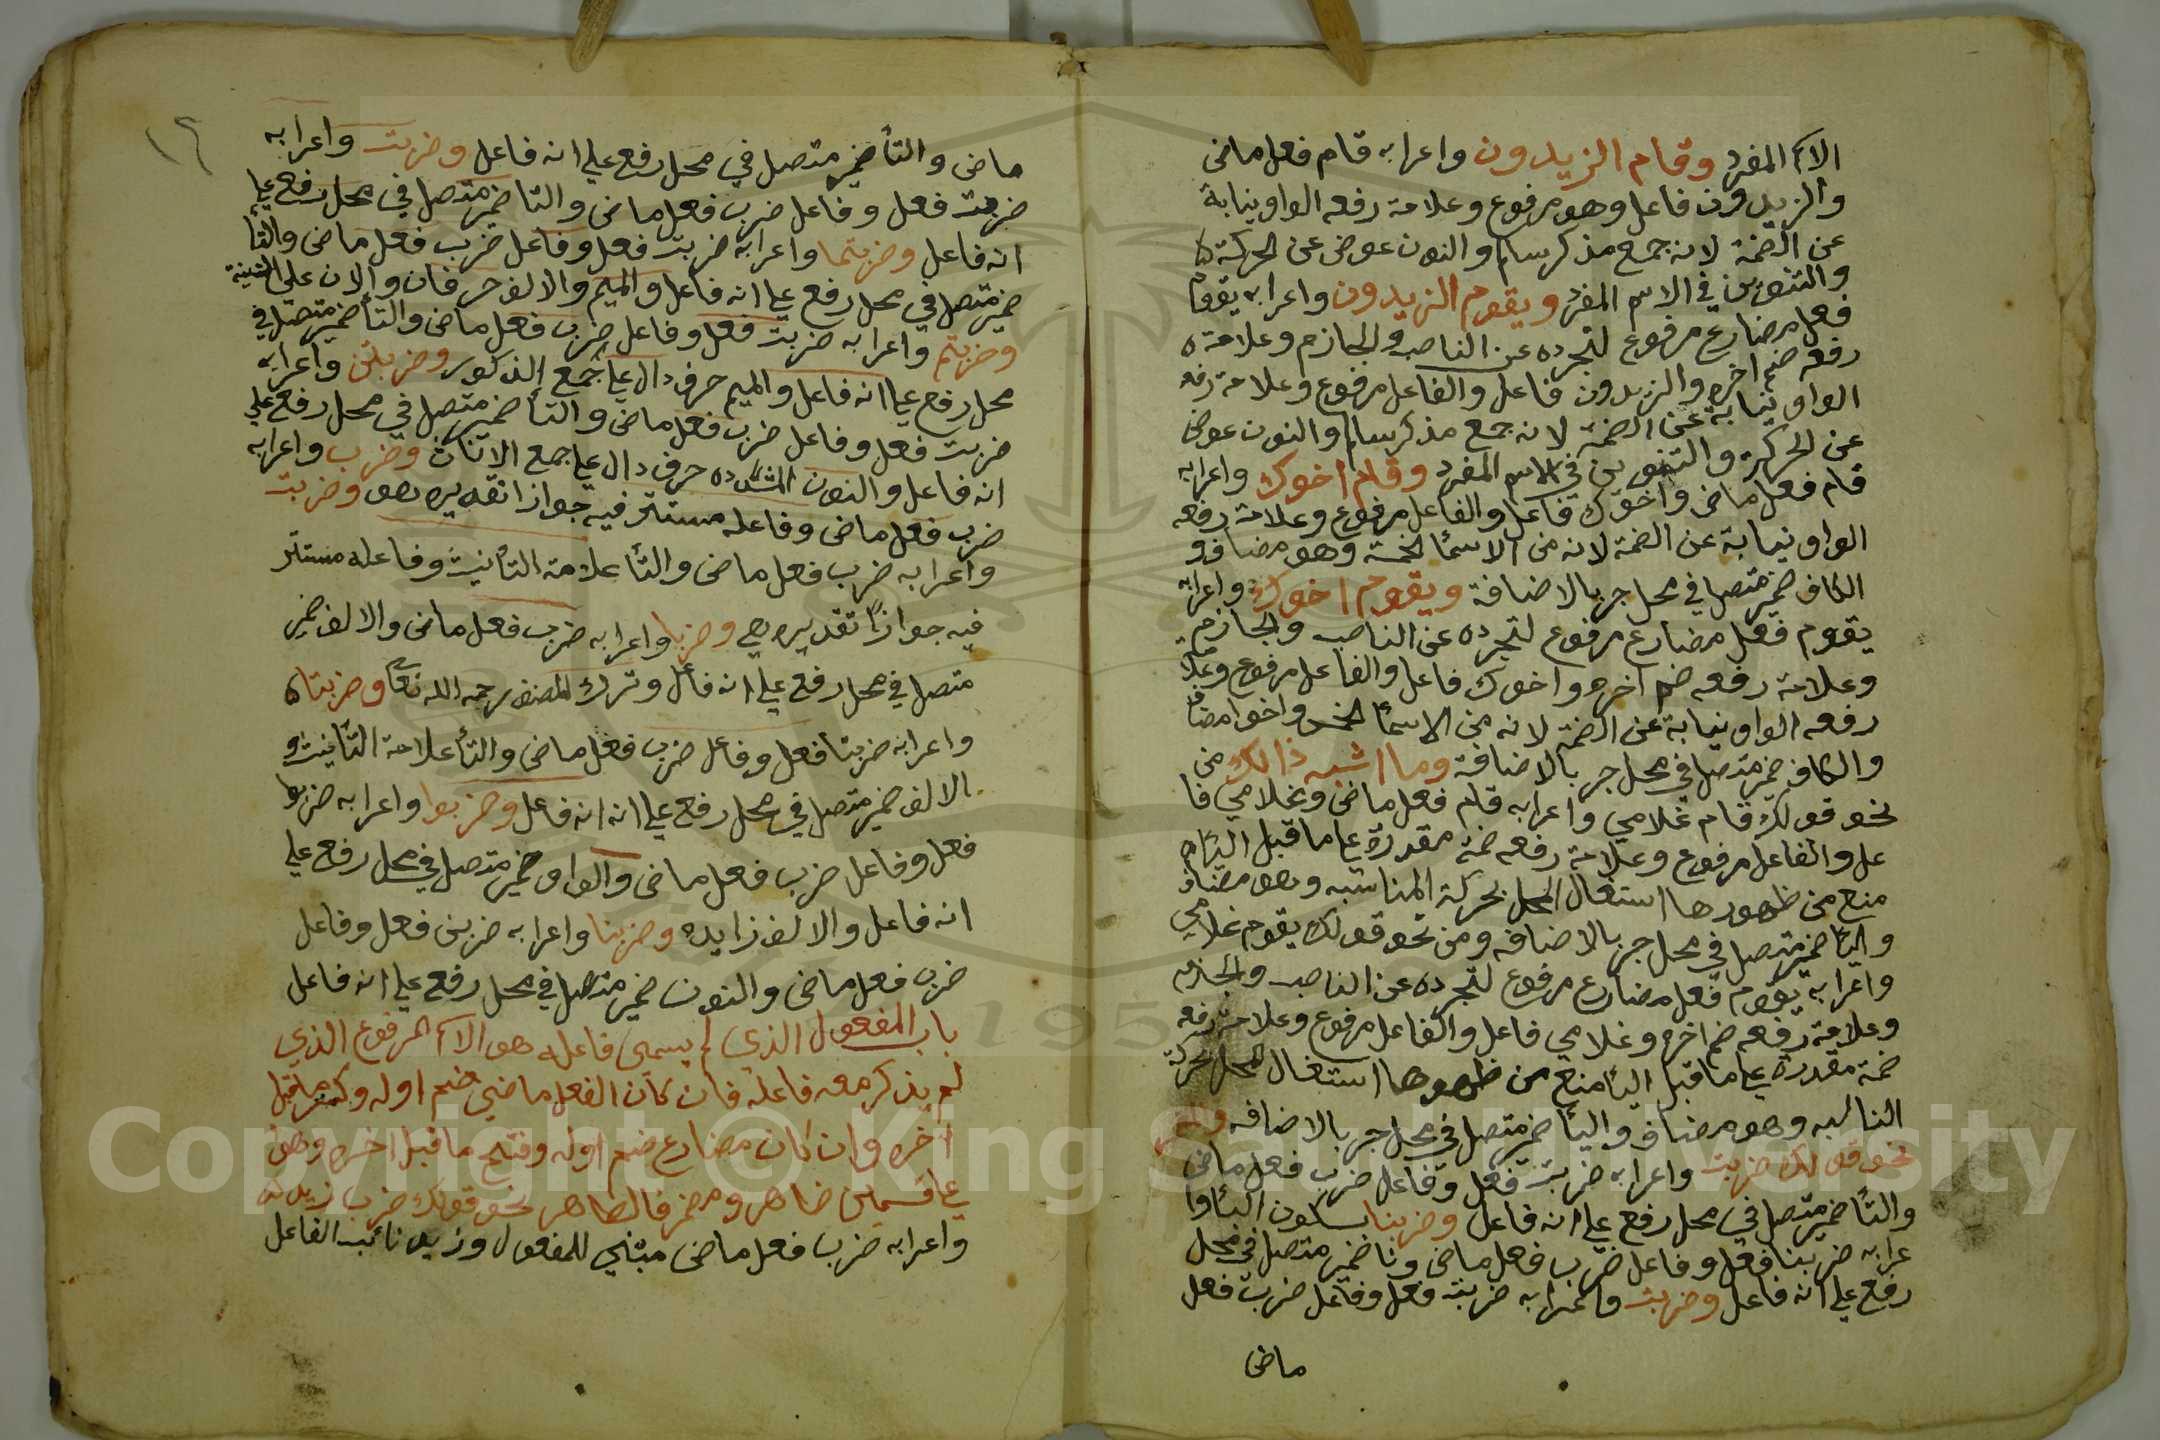 الاسم المفرد وقام الزيدون واعرابه قام فعل ماضى
والزيدون فاعل وهو مرفوع وعلامة رفعه الواو نيابة
عن الضمة لانه جمع مذكر سالم والنون عوض عن الحركة
والتنوين في الاسم المفرد ويقوم الزيدون واعرابه يقوم
فعل مضارع مرفوع لتجرده عن الناصب والجازم وعلامة
رفعه ضم اخره والزيدون فاعل والفاعل مرفوع وعلامة رفعه
الواو نيابة عن الضمة لانه جمع مذكر سالم والنون عوض
عن الحركة والتنوين في الاسم المفرد وقام اخوك واعرابه
قام فعل ماضى واخوك فاعل والفاعل مرفوع وعلامة رفعه
الواو نيابة عن الضمة لانه من الاسمآ الخمسة وهو مضاف و
الكاف ضمير متصل في محل جر بالاضافة ويقوم اخوك واعرابه
يقوم فعل مضارع مرفوع لتجرده عن الناصب والجازم
وعلامة رفعه ضم اخره واخوك فاعل والفاعل مرفوع وعلا
رفعه الواو نيابة عن الضمة لانه من الاسمآ الخمسه واخوا مضاف
والكاف ضمير متصل في محل جر بالاضافة وما اشبه ذالك من
نحو قولك قام غلامي واعرابه قام فعل ماضى وغلامي فا
عل والفاعل مرفوع وعلامة رفعه ضمة مقدرة على ما قبل اليآء
منع من ظهورها استغال المحل بحركة المناسبه وهو مضاف
واليآ ضمير متصل في محل جر بالاضافه ومن نحو قولك يقوم غلامي
واعرابه يقوم فعل مضارع مرفوع لتجرده عن الناصب والجازم
وعلامة رفعه ضم اخره وغلامي فاعل والفاعل مرفوع وعلامة رفعه
ضمة مقدرة على ما قبل اليآ منع من ظهورها استغال المحل بحركة
وهو مضاف واليآ ضمير متصل في محل جر بالاضافه
نحو قولك ضربت واعرابه ضربت فعل وفاعل ضرب فعل ماضى
والتآ ضمير متصل في محل رفع على انه فاعل وضربنا بسكون البآ وا
عرابه ضربنا فعل وفاعل ضرب فعل ماضى ونا ضمير متصل في محل
رفع على انه فاعل وضربت واعرابه ضربت فعل وفاعل ضرب فعل
ماضى
١٦
ماضى والتآ ضمير متصل في محل رفع على انه فاعل وضربت واعرابه
ضربت فعل وفاعل ضرب فعل ماضى والتا ضمير متصل في محل رفع على
انه فاعل وضربتما واعرابه ضربت فعل وفاعل ضرب فعل ماضى والتآ
ضمير متصل في محل رفع على انه فاعل والميم والالف حرفان دالان على التثنية
وضربتم واعرابه ضربت فعل وفاعل ضرب فعل ماضى والتآ ضمير متصل في
محل رفع على انه فاعل والميم حرف دال على جمع الذكور وضربتن واعرابه
ضربت فعل وفاعل ضرب فعل ماضى والتآ ضمير متصل في محل رفع على
انه فاعل والنون المشدده حرف دال على جمع الاناث وضرب واعرابه
ضرب فعل ماضى وفاعله مستتر فيه جوازا تقديره هو وضربت
واعرابه ضرب فعل ماضى والتآ علامة التأنيث وفاعله مستتر
فيه جوازا تقديره هي وضربا واعرابه ضرب فعل ماضى والالف ضمير
متصل في محل رفع على انه فاعل وترك المصنف رحمه الله تعالى وضربتا
واعرابه ضربتا فعل وفاعل ضرب فعل ماضى والتآ علامة التأنيث و
الالف ضمير متصل في محل رفع على انه انه فاعل وضربوا واعرابه ضربوا
فعل وفاعل ضرب فعل ماضى والواو ضمير متصل في محل رفع على
انه فاعل والالف زايده وضربنا واعرابه ضربن فعل وفاعل
ضرب فعل ماضى والنون ضمير متصل في محل رفع على انه فاعل
باب المفعول الذي لم يسمى فاعله هو الاسم المرفوع الذي
لم يذكر معه فاعله فان كان الفعل ماضي ضم اوله وكسر ما قبل
اخره وان كان مضارع ضم اوله وفتح ما قبل اخره وهو
على قسمين ضاهر ومضمر فالظاهر نحو قولك ضرب زيد
واعرابه ضرب فعل ماضى مبني للمفعول وزيد نائب الفاعل
Copyright © King Saud University
1957